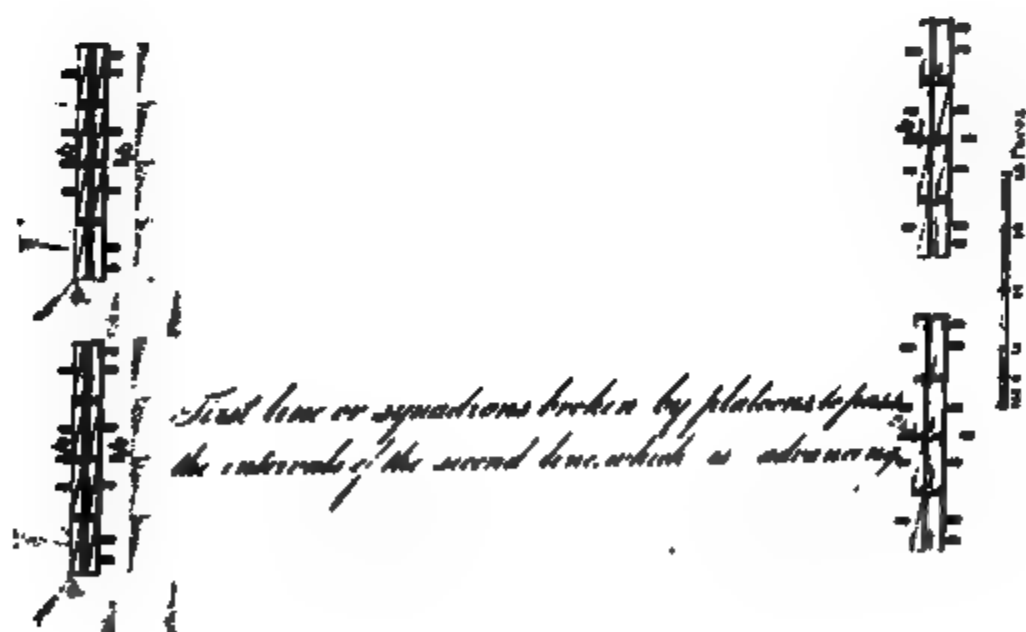 First line or squadrons broken by platoons to pass
the intervals of the second line, which is advancing